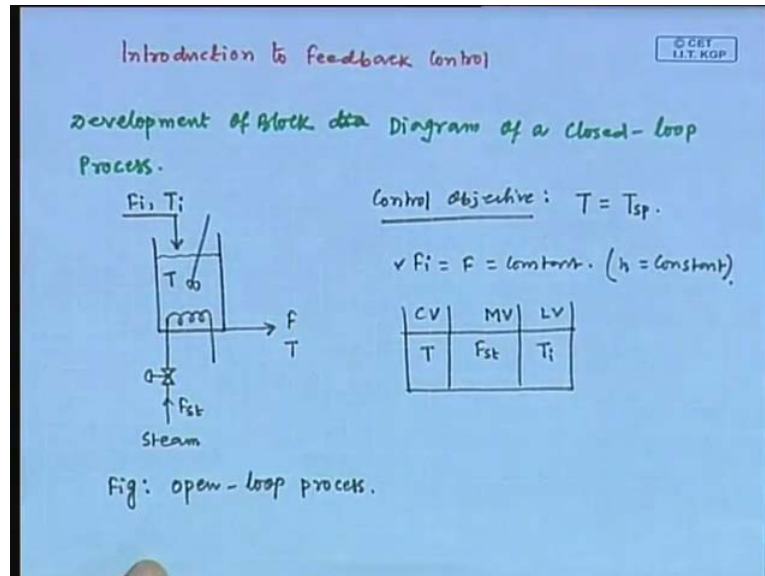 Introduction to Feedback Control
© CET
I.I.T. KGP
Development of Block dia Diagram of a Closed-loop
Process.
Fi, Ti
T
F
T
Fst
Steam
Fig: open-loop process.
Control Objective : T = Tsp.
✓ Fi = F = Constant. (h = Constant).
CV MV LV
T Fst Ti